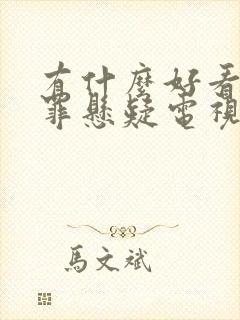 有什麼好看
罪懸疑電視
馬文斌